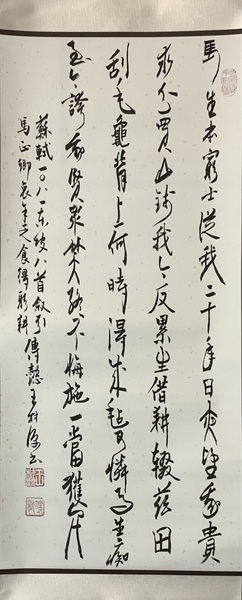 馬生本窮士從我二十年日夜望我貴
求分買山錢我今反累生借耕輟茲田
刮毛龜背上何時得成氈可憐馬生癡
至今誇我賢眾笑終不悔施一當獲千
蘇軾一〇八一東坡八首敘引
馬正卿哀余乏食得躬耕